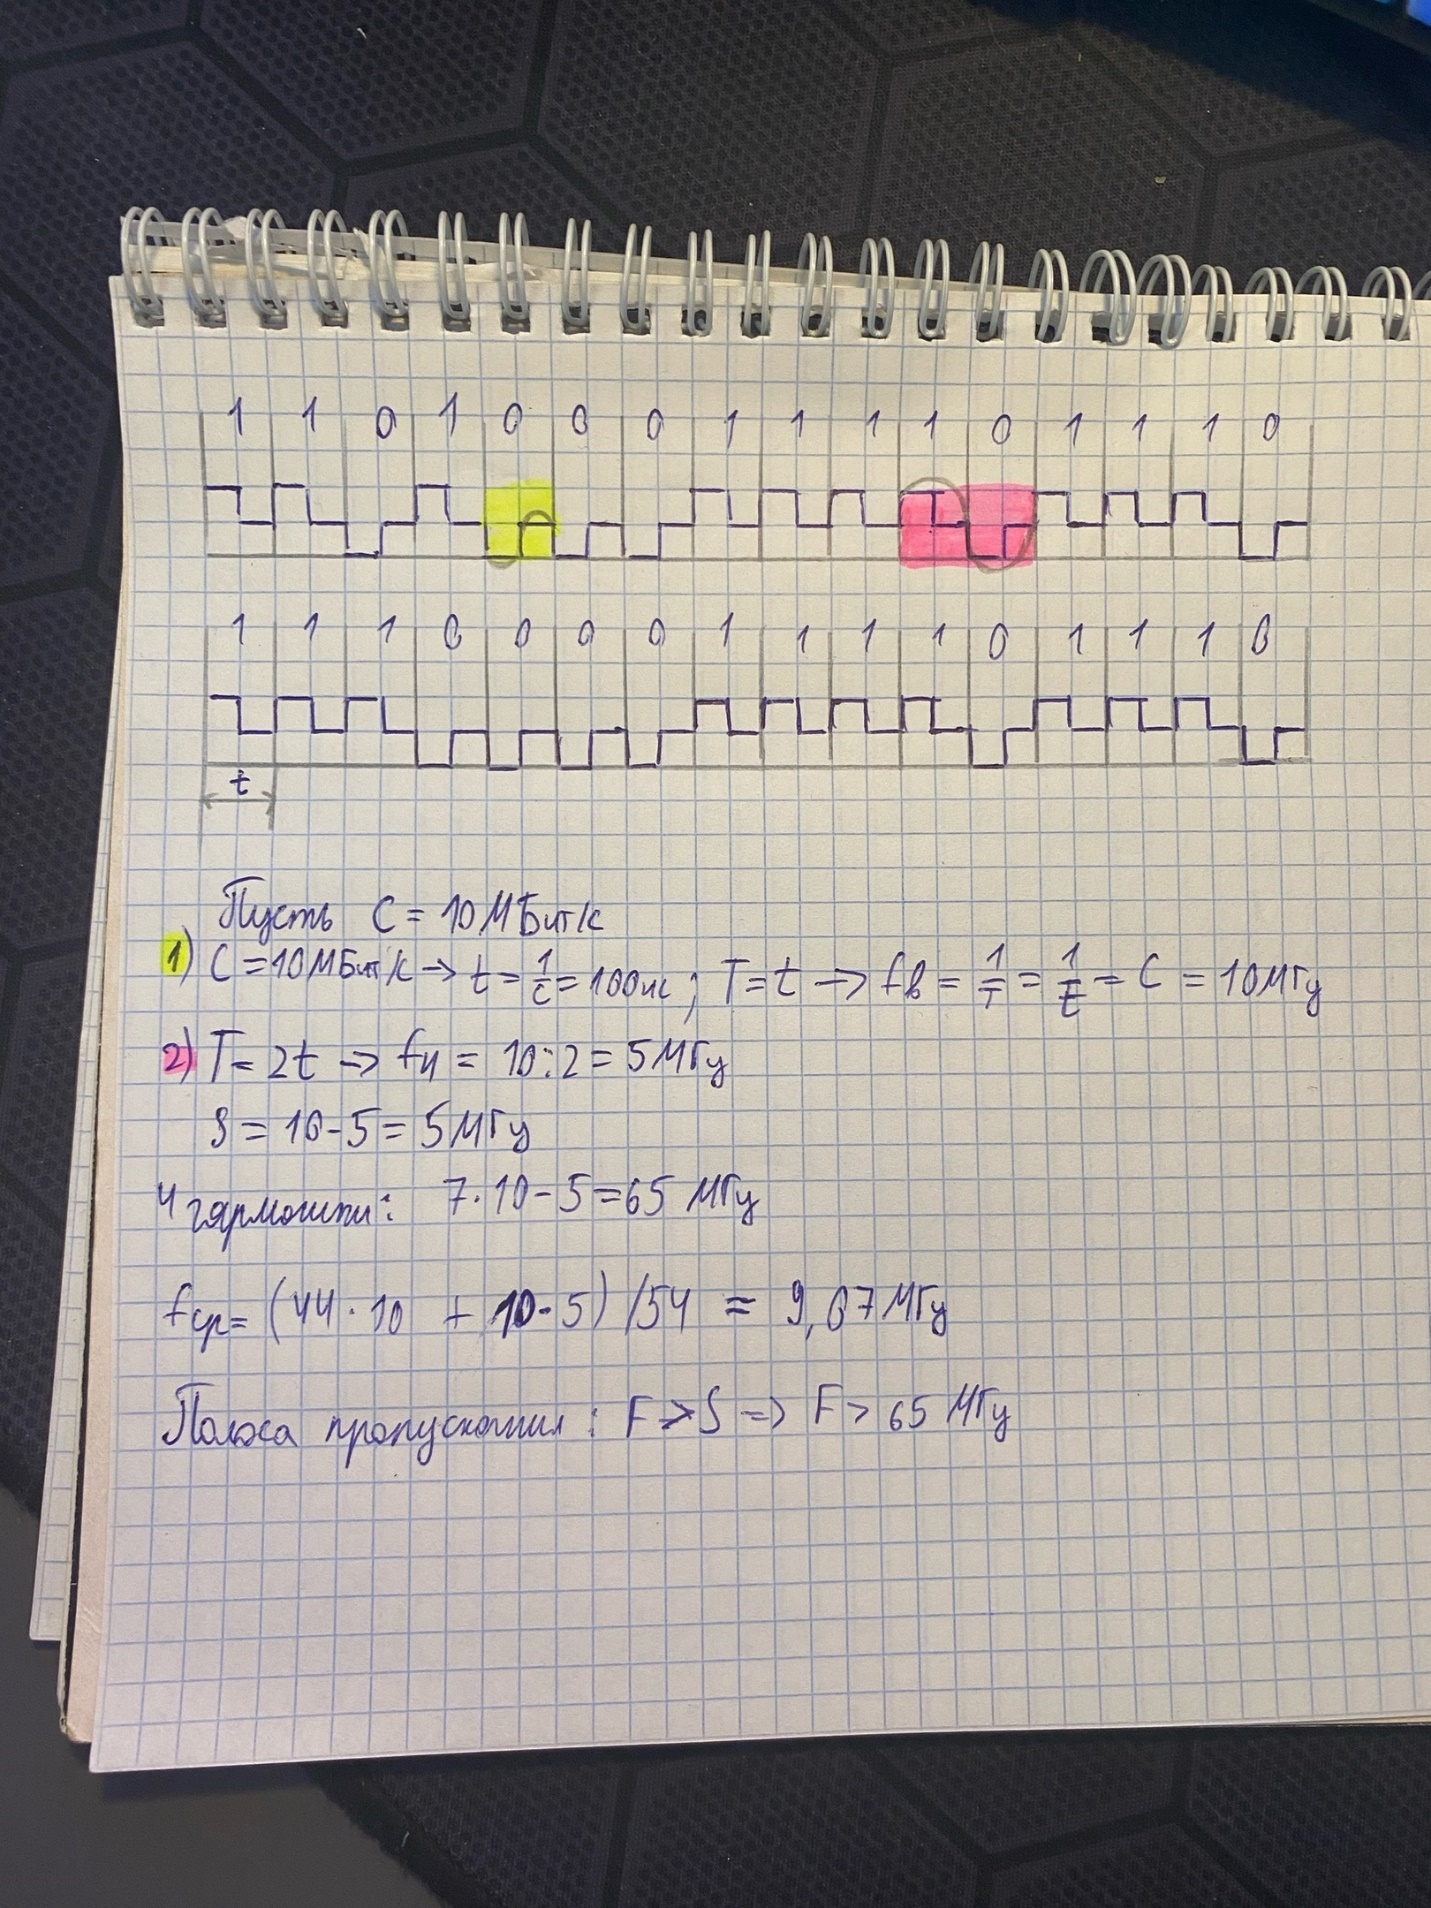 1 1 0 1 0 0 0 1 1 1 1 0 1 1 1 0
1 1 1 0 0 0 0 1 1 1 1 0 1 1 1 0
t
Пусть C = 10 МБит/с
1) C = 10 МБит/с → t = 1/c = 100нс ; T = t → fв = 1/T = 1/t = C = 10 МГц
2) T = 2t → fн = 10:2 = 5 МГц
S = 10 - 5 = 5 МГц
4 гармошки: 7·10 - 5 = 65 МГц
fср = (44·10 + 10·5) /54 = 9,07 МГц
Полоса пропускания : F > S => F > 65 МГц